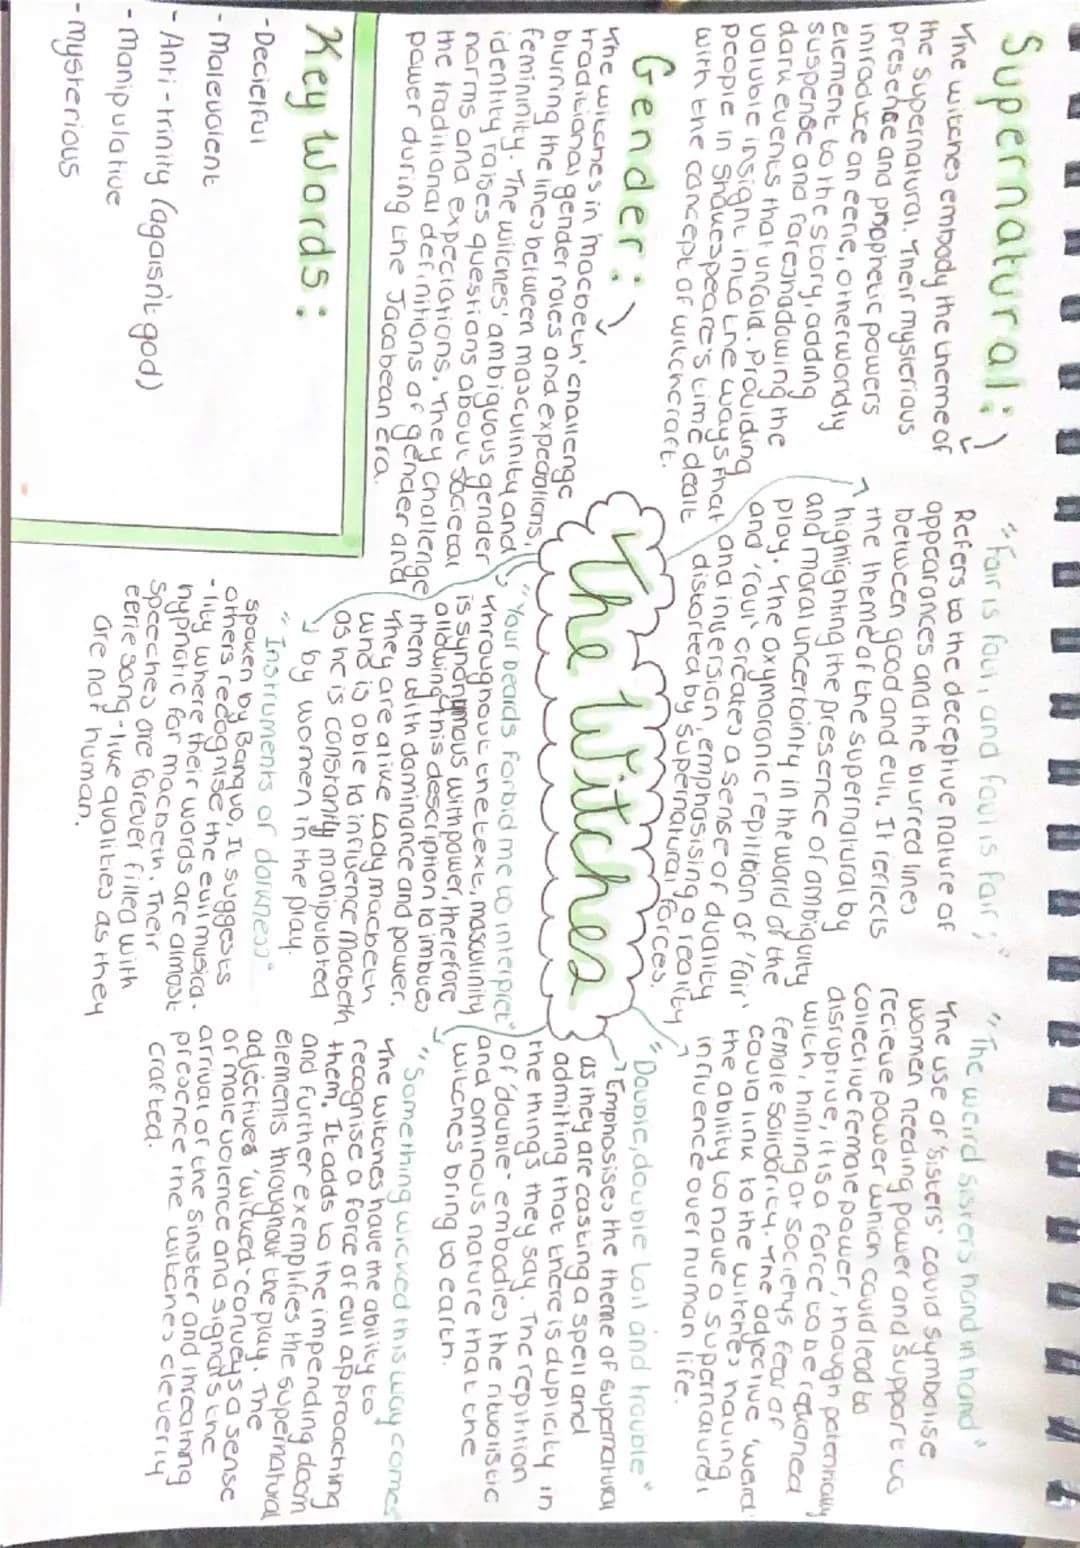 Supernatural:
The witches embody the theme of
the supernatural. Their mysterious
presence and prophetic powers
introduce an eerie, otherworldly
element to the story, adding
suspense and foreshadowing the
dark events that unfold. Providing
valuble insight into the ways that
people in Shakespeare's time dealt
with the concept of witchcraft.
Gender:
The witches in 'macbeth' challenge
traditional gender roles and expectations,
blurring the lines between masculinity and
femininity. The witches' ambiguous gender
identity raises questions about societal
norms and expectations. They challenge
the traditional definitions of gender and
power during the Jacobean era.
Key words:
- Decieful
- Malevolent
- Anti-trinity (agaisnt god)
- manipulative
- mysterious
The Witches
"Fair is foul, and foul is fair;"
Refers to the deceptive nature of
appearances and the blurred lines
between good and evil. It reflects
the theme of the supernatural by
highlighting the presence of ambiguity
and moral uncertainty in the world of the
play. The oxymoronic repitition of 'fair'
and 'foul' creates a sense of duality
and inversion, emphasising a reality
distorted by supernatural forces.
"Your beards forbid me to interpret"
Throughout the text, masculinity
is synonymous with power, therefore
allowing this description to imbues
them with dominance and power.
They are alike Lady macbeth
who is able to influence Macbeth
as he is constantly manipulated
by women in the play.
"Instruments of darkness"
spoken by Banquo, It suggests
others recognise the evil musica-
-lity where their words are almost
hypnotic for macbeth. Their
speeches are forever filled with
eerie song-like qualities as they
are not human.
"The weird sisters hand in hand"
The use of 'sisters' could symbolise
women needing power and support to
recieve power which could lead to
collective female power, though potentially
disruptive, it is a force to be reckoned
with, hinting at society's fear of
female solidarity. The adjective 'weird'
could link to the witches having
the ability to have a supernatural
influence over human life.
"Double, double toil and trouble"
Emphasises the theme of supernatural
as they are casting a spell and
admiting that there is duplicity in
the things they say. The repitition
of 'double' embodies the ritualistic
and ominous nature that the
witches bring to earth.
"Something wicked this way comes"
The witches have the ability to
recognise a force of evil approaching
them. It adds to the impending doom
and further exemplifies the supernatural
elements throughout the play. The
adjective 'wicked' conveys a sense
of malevolence and signals the
arrival of the sinister and threatning
presence the witches cleverly
crafted.